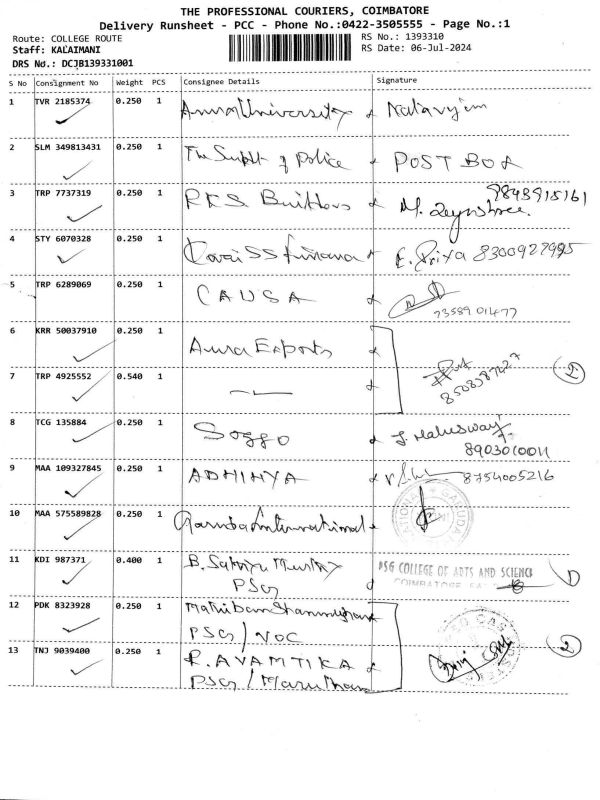 THE PROFESSIONAL COURIERS, COIMBATORE
Delivery Runsheet - PCC - Phone No.:0422-3505555 - Page No.:1
Route: COLLEGE ROUTE
Staff: KALAIMANI
DRS No.: DCJB139331001
RS No.: 1393310
RS Date: 06-Jul-2024
S No Consignment No Weight PCS Consignee Details Signature
1 TVR 2185374 0.250 1 University
2 SLM 349813431 0.250 1 The Supdt of Police POST BOX
3 TRP 7737319 0.250 1 Builders 9843915161
4 STY 6070328 0.250 1 Kovai SS E. Priya 8300927995
5 TRP 6289069 0.250 1 CAUSA
73589 01477
6 KRR 50037910 0.250 1 Aura Exports
7 TRP 4925552 0.540 1 8508387427 2
8 TCG 135884 0.250 1 Soggo J. Maheswari
8903010011
9 MAA 109327845 0.250 1 ADHIHYA 8754005216
10 MAA 575589828 0.250 1 Garuda International
11 KDI 987371 0.400 1 B.
PSG
PSG COLLEGE OF ARTS AND SCIENCE
COIMBATORE
12 PDK 8323928 0.250 1
PSG / NOC
13 TNJ 9039400 0.250 1 R. AVAMTIKA 2
PSG / Marutham